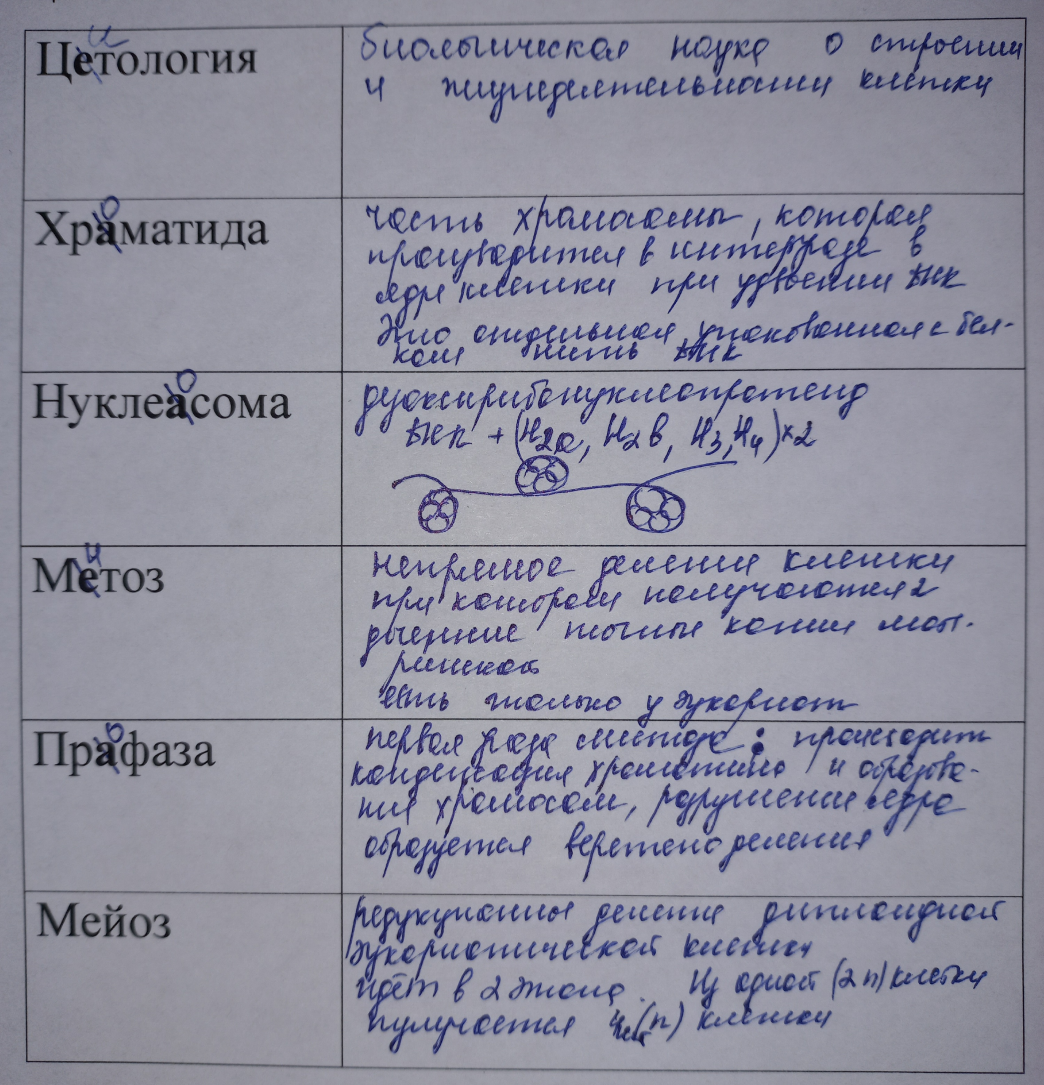 Цетология
и
биологическая наука о строении
и жизнедеятельности клетки
Храматида
о
часть хромосомы, которая
производится в интерфазе в
ядре клетки при удвоении ДНК
Это отдельная упакованная с бел-
ком нить ДНК
Нуклеасома
о
дуоксирибонуклеопротеид
ДНК + (H2a, H2b, H3, H4)×2
Метоз
и
непрямое деление клетки
при котором получаются 2
дочерние точные копии мат.
ринской
есть только у эукариот
Прафаза
о
первая фаза митоза : происходит
конденсация хроматина и образова-
ния хромосом, разрушение ядра
образуется веретено деления
Мейоз
редукционное деление диплоидной
эукариотической клетки
идёт в 2 этапа. Из одной (2n) клетки
получается (n) клетки